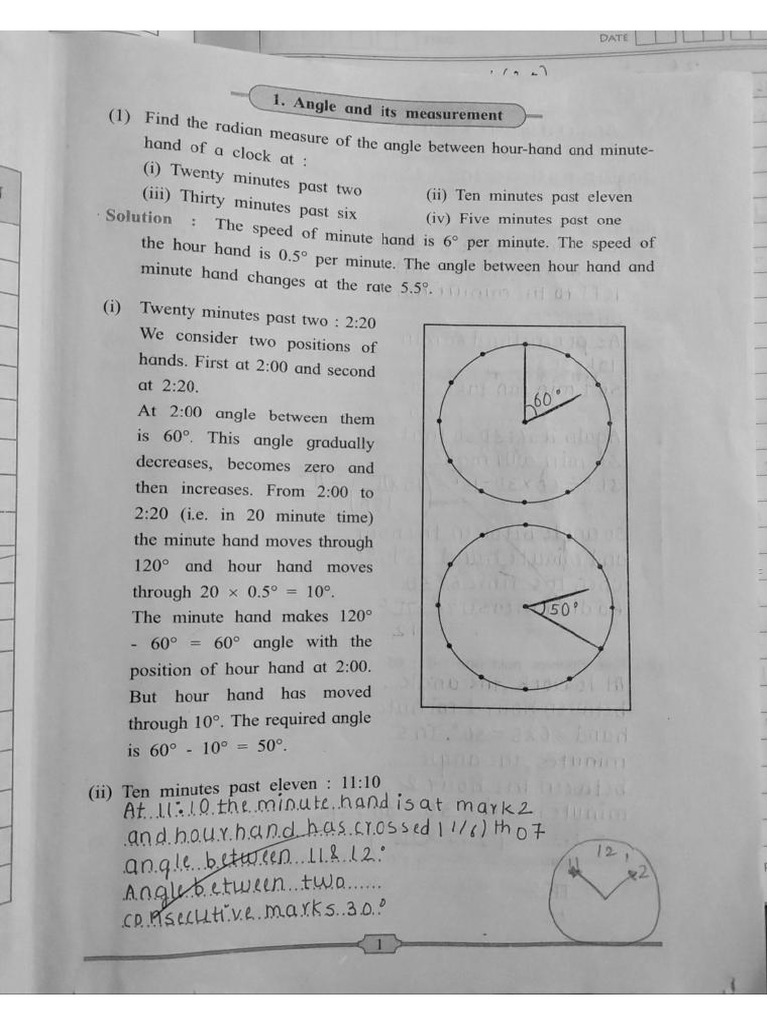 DATE
1. Angle and its measurement
(1) Find the radian measure of the angle between hour-hand and minute-
hand of a clock at :
(i) Twenty minutes past two (ii) Ten minutes past eleven
(iii) Thirty minutes past six (iv) Five minutes past one
Solution : The speed of minute hand is 6° per minute. The speed of
the hour hand is 0.5° per minute. The angle between hour hand and
minute hand changes at the rate 5.5°.
(i) Twenty minutes past two : 2:20
We consider two positions of
hands. First at 2:00 and second
at 2:20.
At 2:00 angle between them
is 60°. This angle gradually
decreases, becomes zero and
then increases. From 2:00 to
2:20 (i.e. in 20 minute time)
the minute hand moves through
120° and hour hand moves
through 20 × 0.5° = 10°.
The minute hand makes 120°
- 60° = 60° angle with the
position of hour hand at 2:00.
But hour hand has moved
through 10°. The required angle
is 60° - 10° = 50°.
60°
50°
(ii) Ten minutes past eleven : 11:10
At 11:10 the minute hand is at mark 2
and hour hand has crossed (1/6)th of
angle between 11 & 12.
Angle between two
consecutive marks 30°
12
11
2
1